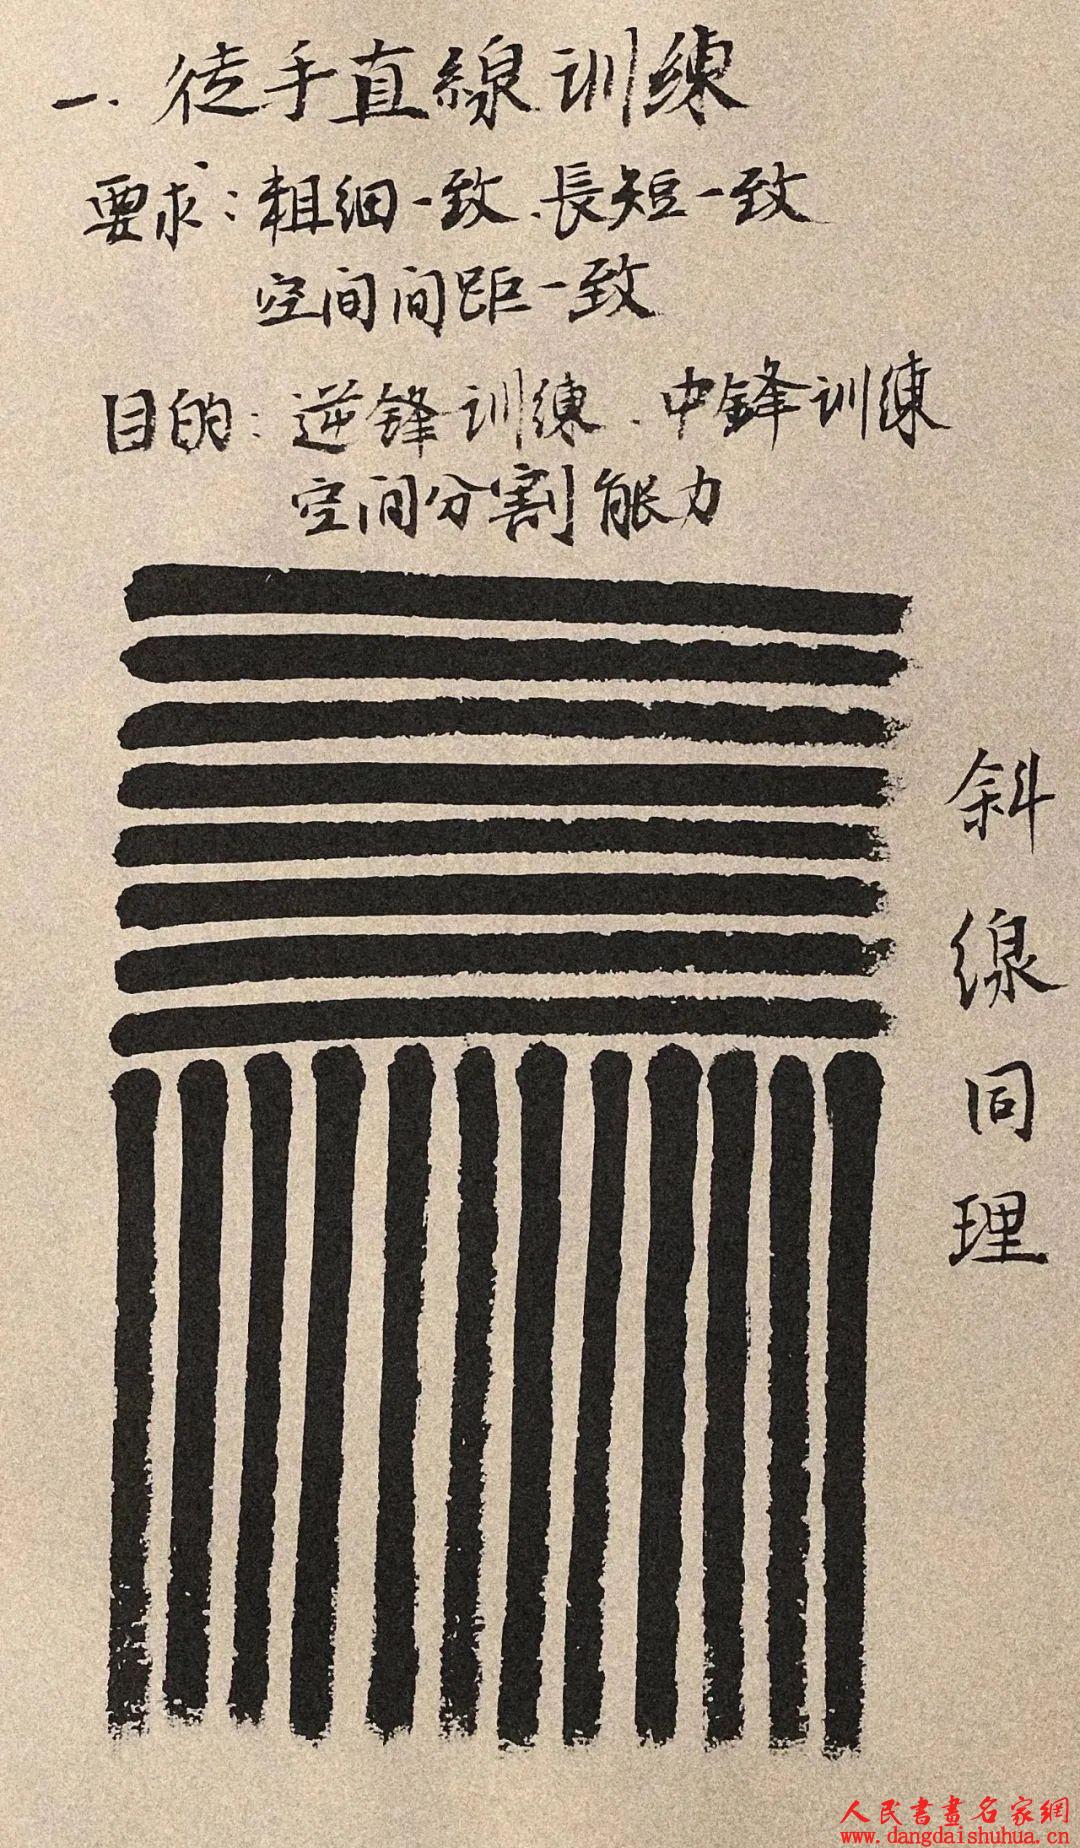 一.徒手直線训練
要求:粗细一致、長短一致
空间间距一致
目的:逆锋训練、中鋒训練
空间分割能力
斜線同理
人民書畫名家網
www.dangdaishuhua.cn